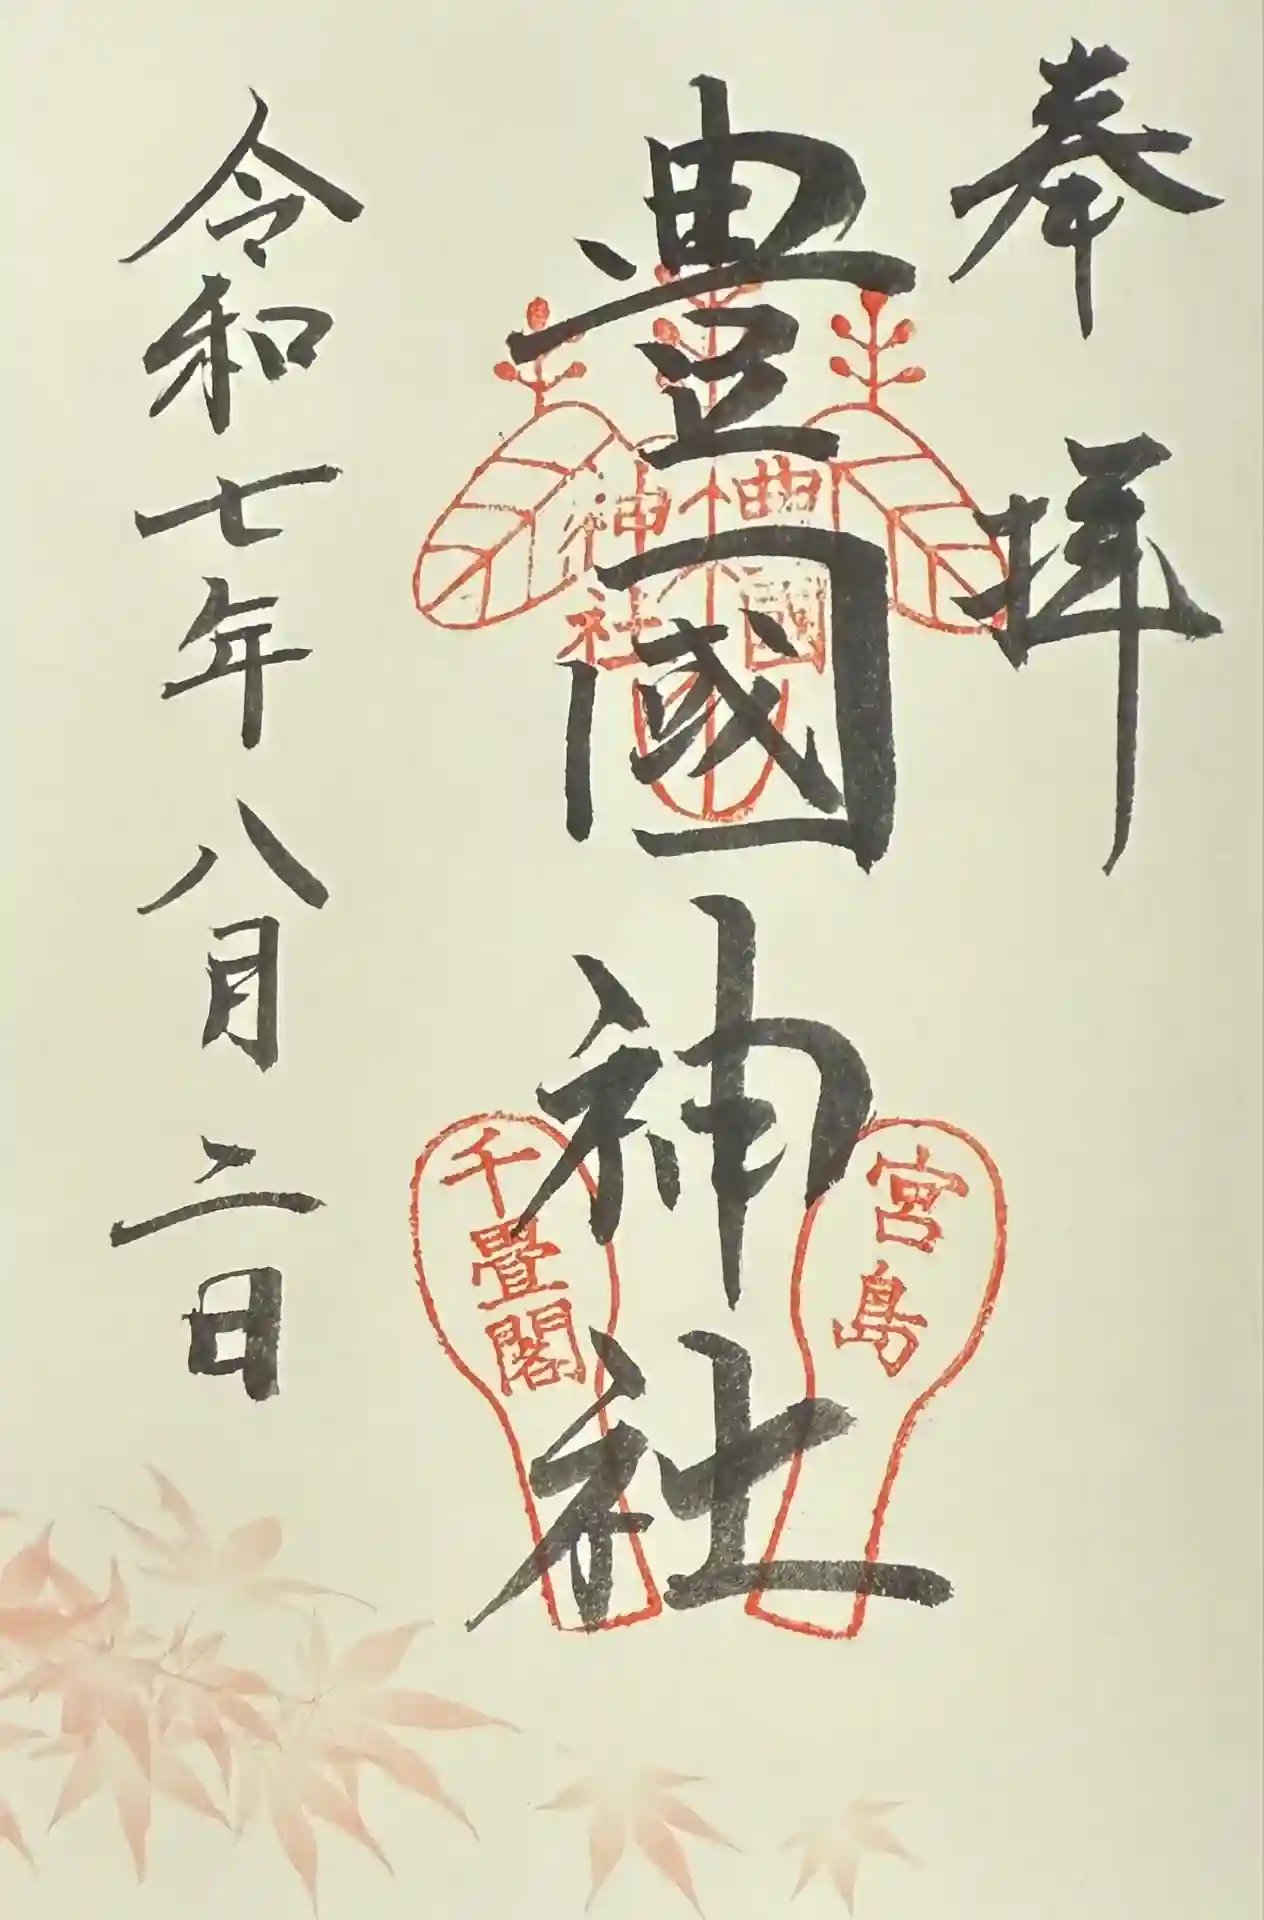 奉拝
豊國神社
豊國
神社
宮島
千畳閣
令和七年八月二日